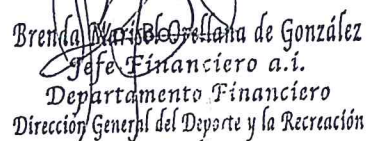 Brenda Marisol Orellana de González
Jefe Financiero a.i.
Departamento Financiero
Dirección General del Deporte y la Recreación